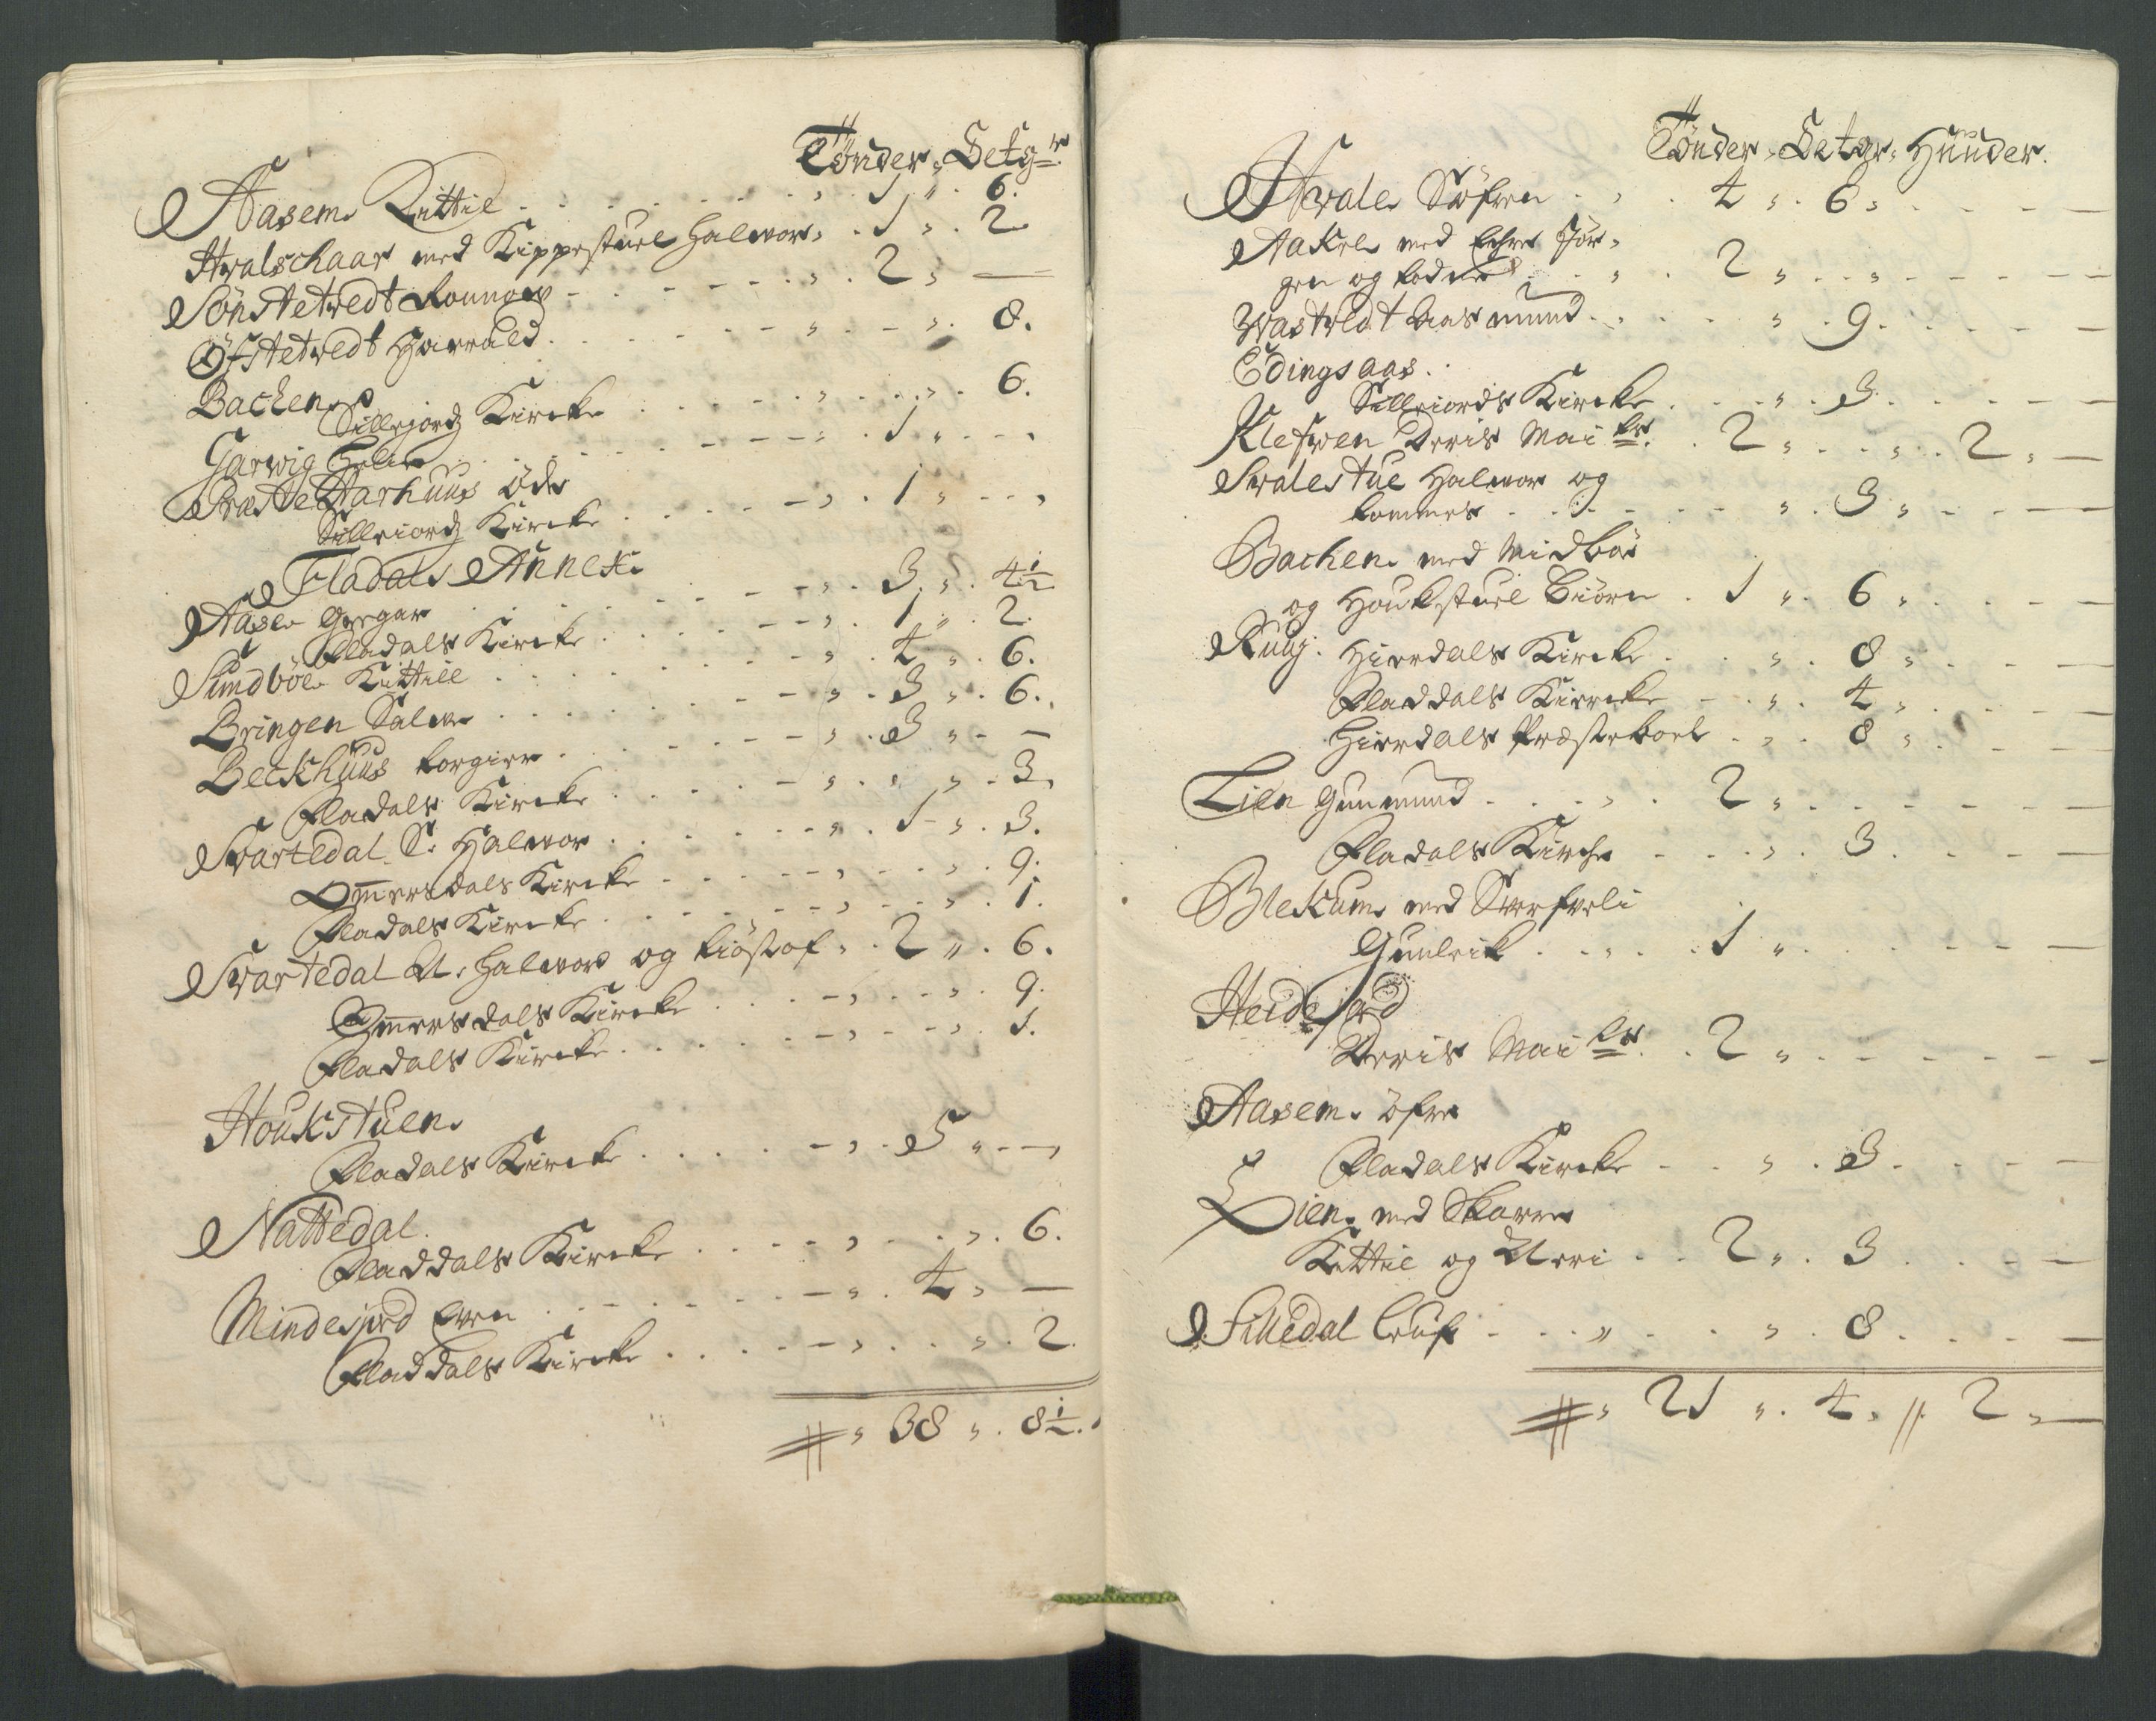 Tönder " Setg=r
Aasem Kittil . . . . . . . " . 1 " . 6.
Hvalschaar med Kippestuel Halvor " . 1 " . 2
Sönstetvedt - - - - - - " . 2 " —
Öfstetvedt Harrald . . . . - - " . - - " . 8.
Bachen
Sillejordz Kircke . . . . . " . . . " . 6.
Garvig - - - - " . 1 " . - - "
PræsteAarhuus öde
Silleiordz Kircke . . . . - " . 1 " . - - "
Fladals Annex
Aase Gregar . . . - - - - " . 3 " . 4½
Fladals Kircke . . . . - - - " . 1 " . 2.
Sundböe Kittill . . . . - - " . 4 " . 6.
Bringen - - " . 3 " . 6.
Beckhuus Torgier . . . - - - " . 3 " . - —
Fladals Kircke . . . . . - " . " " . 3.
Svartedal S. Halvor . . . . . - " . 1 " . 3.
Ommersdals Kircke . . . . . - " . - - " . 9.
Fladals Kircke . . . . . . - " . - - " . 1.
Svartedal N. Halvor og Kiöstof " . 2 " . 6.
Ommersdals Kircke . . . . - " . - - " . 9.
Fladals Kircke . . . . . - " . - - " . 1.
Houkstuen
Fladals Kircke . . . . . - " . 5 " . - "
Nattedal
Fladdals Kircke . . . . . " . . . " . 6.
Mindesjord Even . . - . . . - " . 4 " —
Fladdals Kircke . . . . - " . . . " . 2.
# " 38 " . 8½.
Tönder " Setgr " Hüüder.
Hvale Söfren . . " . 4 " . 6 " . . . - —
Aakre med Jör=
gen og . . " . 2 " . . " . - - - —
Vastvedt Aasmund . . . . . " . 9 . . . - —
Edingsaas.
Silleiords Kircke . . . " . 3 . . . . - —
Klefven Deris Mai ts . 2 " . . . " . . 2 " —
Svalestue Halvor og
Tommes . . . - . - - " . 3 " . - . - —
Bachen med Midböe
og Houkstuel Biörn . 1 " . 6 " . . . - —
Ruuy. Hierdals Kircke . . " . 8 " . . . —
Fladdals Kircke - . " . 4 " . . . —
Hierdals Præstebol . " . 8 " . . . —
Lien Gunmund . . . " . 2 " . . . - - —
Fladals Kirche . . . " . 3 . . . - —
Blekum med
Gunleik . . " . . 1 " . . . . - - —
Heidejord
Deris Mai ts . . 2 " . - . - - - —
Aasem öfre
Fladals Kircke . . " . 3 . . - - —
Lien med Skarre
Kittil og . . 2 " . 3 . . . - —
Silledal Leuf . . . " . . . " . 8 . . . - —
# " 21 " . 4 " // 2 " —